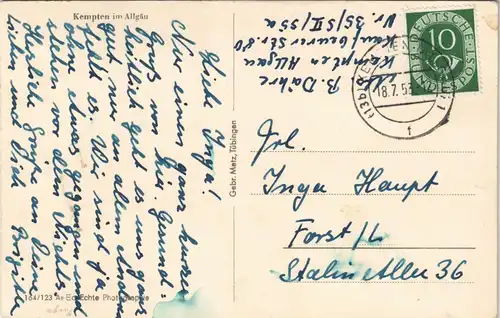 Kempten im Allgäu
Liebe Inga!
Nur einen ganz kurzen
Gruß von hier. Gesund-
heitlich geht es uns ganz
gut, nur an allem Andern
fehlt es. Wir sind ja
ohne etwas gegangen und
stehen vor dem Nichts.
Herzliche Grüße an Deine
Lieben und Dich. Deine
Brigitte
164/123 Echte Photographie
Gebr. Metz, Tübingen
B. Dähre
Kempten Allgäu
Kaufbeurer Str. 80
Nr. 35/SII/55a
DEUTSCHE BUNDESPOST
10
(13b) KEMPTEN
18.7.53
f
Frl.
Inga Haupt
Forst/L
Stalin Allee 36